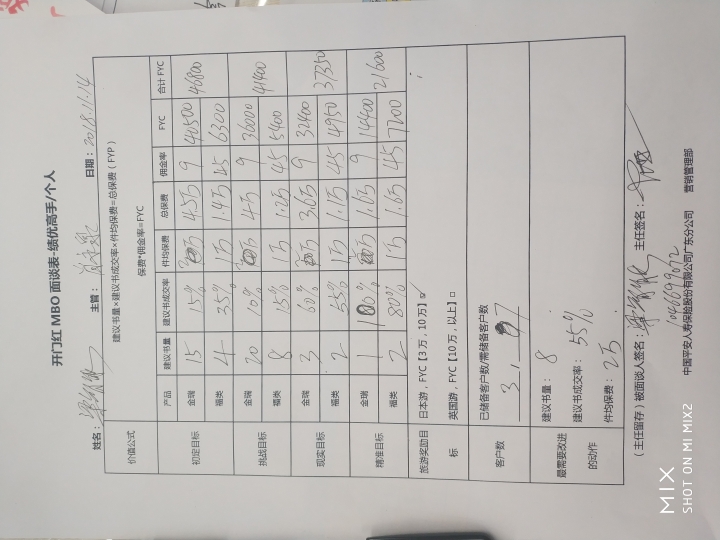 开门红 MBO 面谈表-绩优高手/个人
姓名： 主管： 日期：2018.11.14
价值公式 建议书量×建议书成交率×件均保费=总保费（FYP）
保费*佣金率=FYC
产品 建议书量 建议书成交率 件均保费 总保费 佣金率 FYC 合计 FYC
初定目标 金瑞 15 15% 4.5万 9 40500 46800
福类 4 35% 1万 1.4万 45 6300
挑战目标 金瑞 20 10% 4万 9 36000 41400
福类 8 15% 1万 1.2万 45 5400
现实目标 金瑞 3 60% 3.6万 9 32400 37350
福类 2 55% 1万 1.1万 45 4950
精准目标 金瑞 1 100% 1.6万 9 14400 21600
福类 2 80% 1万 1.6万 45 7200
旅游奖励目标 日本游，FYC【3万，10万】☑
英国游，FYC【10万，以上】□
客户数 已储备客户数/需储备客户数
3，7
最需要改进的动作 建议书量： 8
建议书成交率： 55%
件均保费： 2万
（主任留存）被面谈人签名： 主任签名：
中国平安人寿保险股份有限公司广东分公司 营销管理部
MIX
SHOT ON MI MIX2